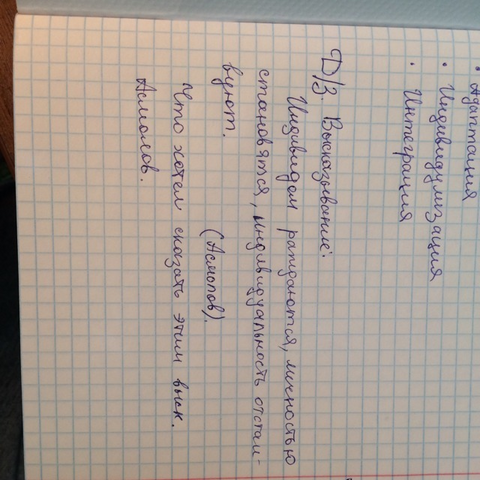 • Адаптация
• Индивидуализация
• Интеграция
Д/З. Высказывание:
Индивидом рождаются, личностью
становятся, индивидуальность отстаи-
вуют.
(Асмолов).
Что хотел сказать этим выск.
Асмолов.